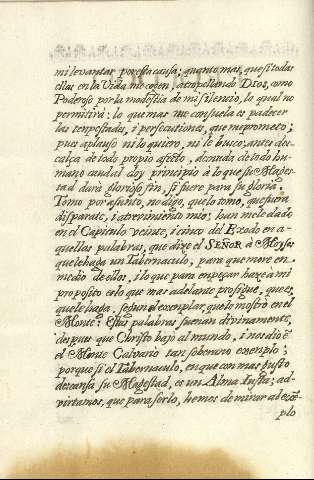 mi levantar por esta causa; quanto mas, que si todas
ellas en la Vida me cogen, atropellando DIOS, como
Poderoso por la modestia de mi silencio, lo qual no
permitirà: lo que mas me consuela es padecer
las tempestades, i persecutiones, que me prometo;
pues aplauso ni lo quiero, ni le busco, antes des-
calça de todo propio afecto, desnuda de todo hu-
mano caudal doy principio à lo que su Mages-
tad darà glorioso fin, si fuere para su gloria.
Tomo por asunto, no digo, que lo tomo, que fuera
disparate, i atrevimiento mio: han mele dado
en el Capitulo veinte, i cinco del Exodo en a-
quellas palabras, que dize el SEÑOR à Moyses
que le haga un Tabernaculo, para que more en
medio de ellos, i lo que para empeçar haze à mi
proposito es lo que mas adelante prosigue, que es,
que le haga, segun el exemplar, que le mostrò en el
Monte: Estas palabras suenan divinamente,
despues que Christo bajo al mundo, i nos dio ē
el Monte Calvario tan soberano exemplo;
porque si el Tabernaculo, en que con mas gusto
descansa su Magestad, es un Alma Justa; ad-
virtamos, que para serlo, hemos de mirar al exē-
plo